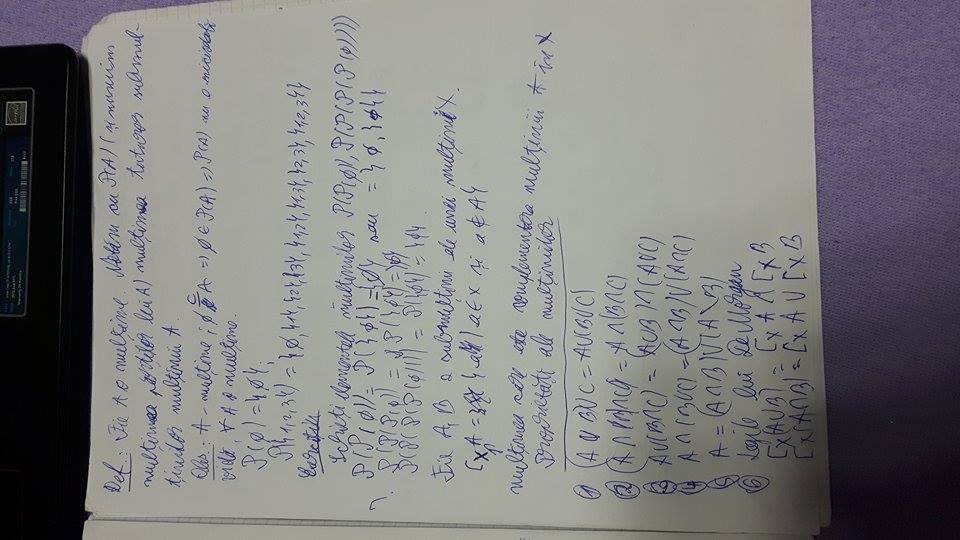 Def.: Fie A o mulțime. Notăm cu P(A) (și numim
mulțimea părților lui A) mulțimea tuturor submul-
țimilor mulțimii A.
Obs.: A - mulțime; ∅ ⊆ A => ∅ ∈ P(A) => P(A) nu e niciodată
vidă, ∀ A o mulțime.
P(∅) = {∅},
P({1,2,3}) = {∅,{1},{2},{3},{1,2},{1,3},{2,3},{1,2,3}}
Exercițiu
Scrieți elementele mulțimilor P(P(∅)), P(P(P(P(∅))))
P(P(∅)) = P({∅}) = {∅} sau = {∅,{∅}}
P(P(∅)) = P({∅}) =
P(P(P(P(∅)))) = P({∅}) = {∅}
Fie A, B 2 submulțimi ale unei mulțimi X.
C_X A = {a | a ∈ X și a ∉ A}
mulțimea care este complementara mulțimii A în X
Proprietăți ale mulțimilor
① (A ∪ B) ∪ C = A ∪ (B ∪ C)
② (A ∩ B) ∩ C = A ∩ (B ∩ C)
③ A ∪ (B ∩ C) = (A ∪ B) ∩ (A ∪ C)
④ A ∩ (B ∪ C) = (A ∩ B) ∪ (A ∩ C)
⑤ A = (A ∩ B) ∪ (A \ B)
⑥ Legile lui De Morgan
C_X (A ∪ B) = C_X A ∩ C_X B
C_X (A ∩ B) = C_X A ∪ C_X B